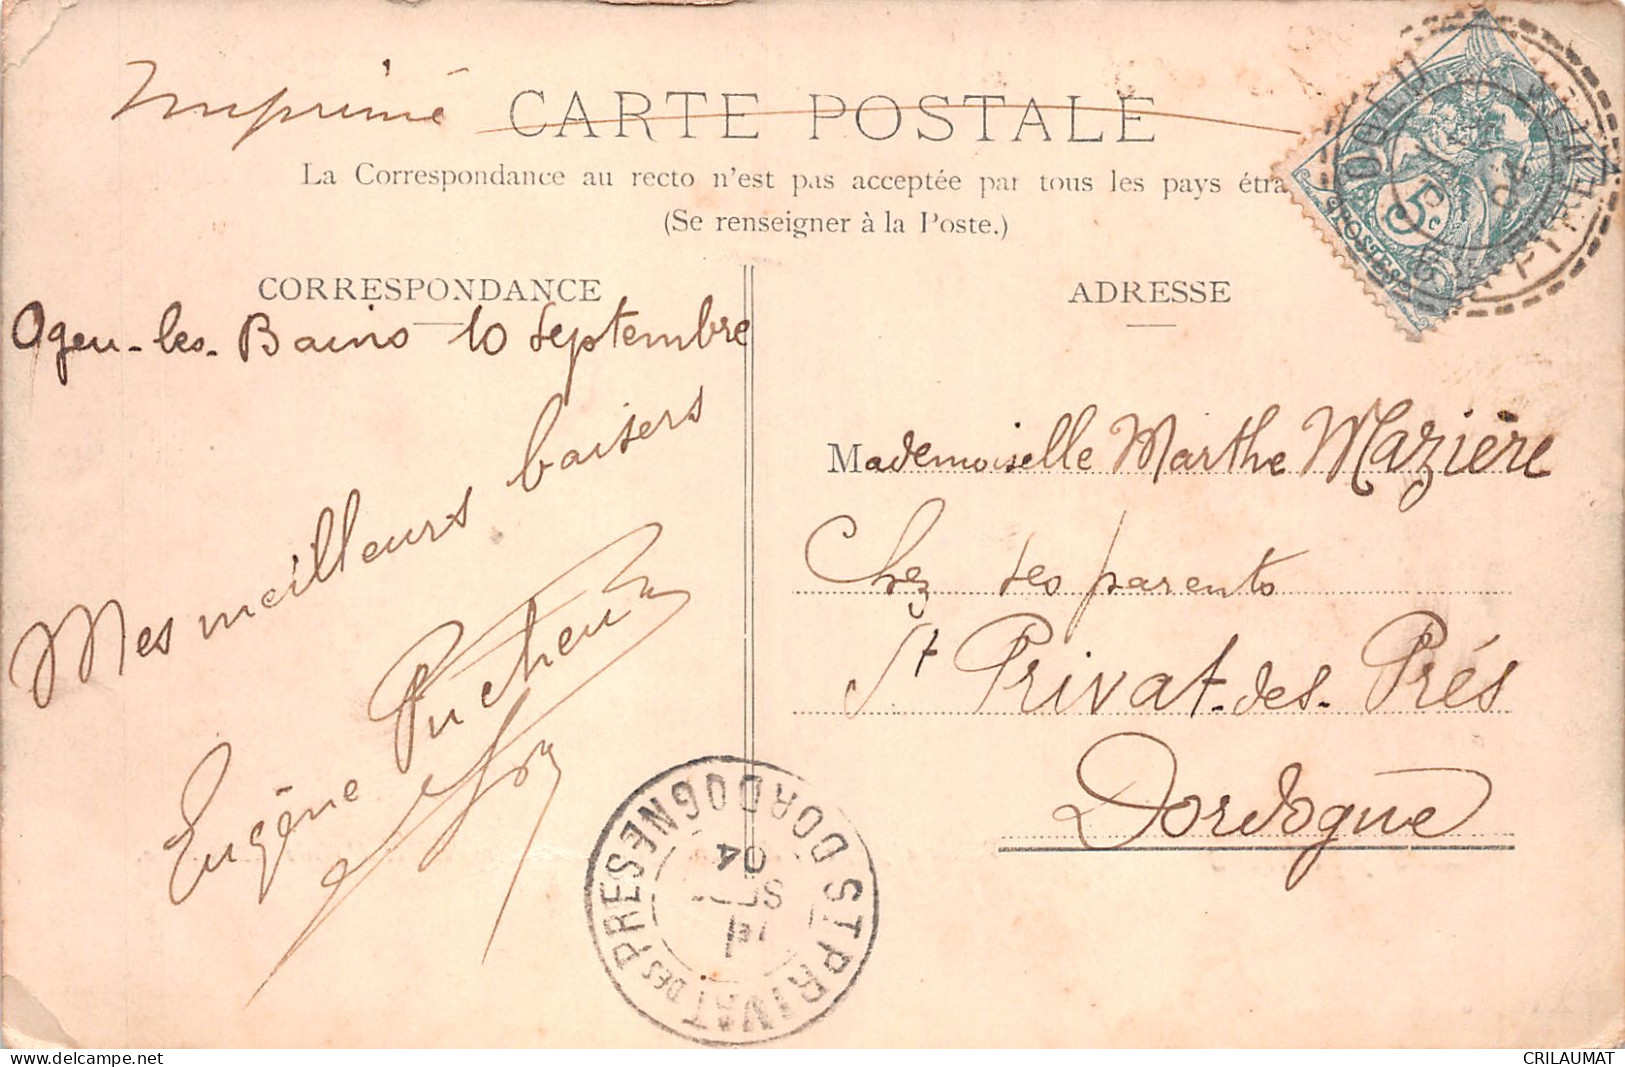 Imprimé
CARTE POSTALE
La Correspondance au recto n'est pas acceptée par tous les pays étra
(Se renseigner à la Poste.)
CORRESPONDANCE
Ogeu-les-Bains 10 Septembre
Mes meilleurs baisers
Eugène Pucheu
ADRESSE
Mademoiselle Marthe Mazière
Chez ses parents
St Privat-des-Prés
Dordogne
5c
POSTES
OGEU
ST PRIVAT DES PRES DORDOGNE
04
CRILAUMAT